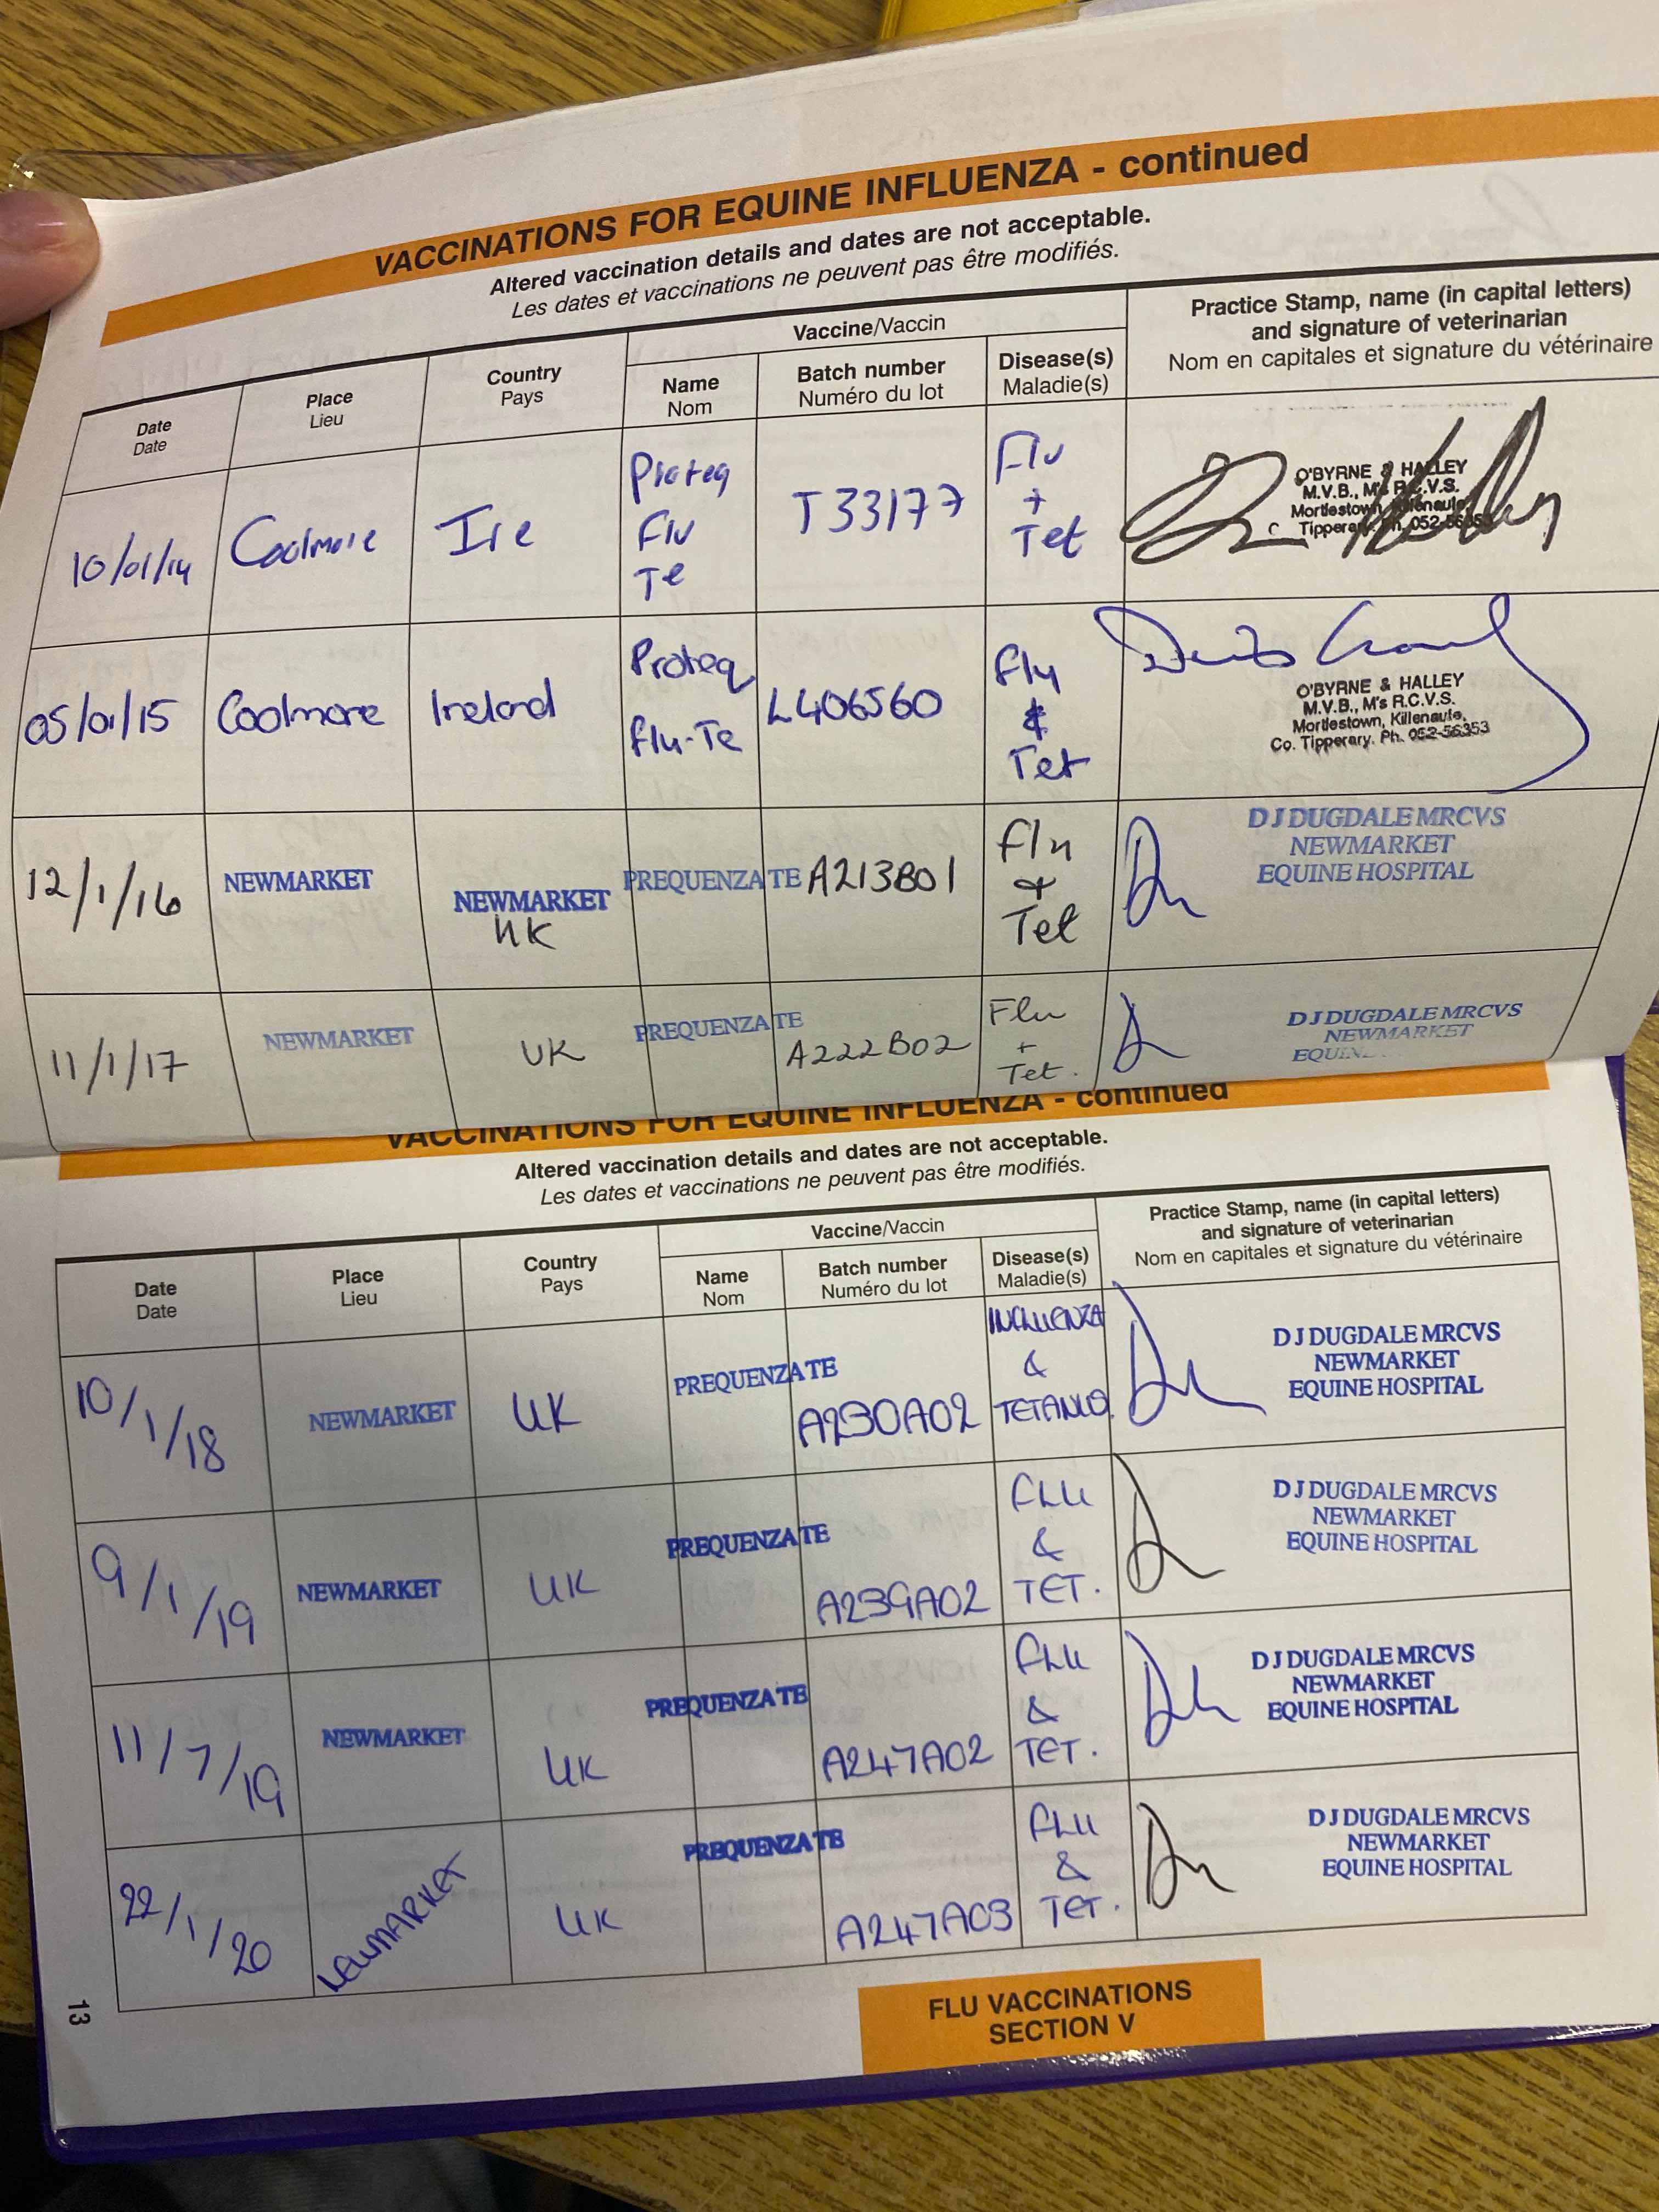 VACCINATIONS FOR EQUINE INFLUENZA - continued
Altered vaccination details and dates are not acceptable.
Les dates et vaccinations ne peuvent pas être modifiés.
Date
Date
Place
Lieu
Country
Pays
Vaccine/Vaccin
Name
Nom
Batch number
Numéro du lot
Disease(s)
Maladie(s)
Practice Stamp, name (in capital letters)
and signature of veterinarian
Nom en capitales et signature du vétérinaire
10/01/14
Coolmore
Ire
Proteq
Flu
Te
T33177
Flu
+
Tet
O'BYRNE & HALLEY
M.V.B., M's R.C.V.S.
Mortlestown, Killenaule,
Tipperary. Ph. 052-56353
05/01/15
Coolmore
Ireland
Proteq
flu-Te
L406560
Flu
&
Tet
O'BYRNE & HALLEY
M.V.B., M's R.C.V.S.
Mortlestown, Killenaule,
Co. Tipperary. Ph. 052-56353
12/1/16
NEWMARKET
NEWMARKET
UK
PREQUENZA TE
A213B01
Flu
&
Tet
D J DUGDALE MRCVS
NEWMARKET
EQUINE HOSPITAL
11/1/17
NEWMARKET
UK
PREQUENZA TE
A222B02
Flu
+
Tet.
D J DUGDALE MRCVS
NEWMARKET
VACCINATIONS FOR EQUINE INFLUENZA - continued
Altered vaccination details and dates are not acceptable.
Les dates et vaccinations ne peuvent pas être modifiés.
Date
Date
Place
Lieu
Country
Pays
Vaccine/Vaccin
Name
Nom
Batch number
Numéro du lot
Disease(s)
Maladie(s)
Practice Stamp, name (in capital letters)
and signature of veterinarian
Nom en capitales et signature du vétérinaire
10/1/18
NEWMARKET
UK
PREQUENZA TE
A230A02
INFLUENZA
&
TETANUS
D J DUGDALE MRCVS
NEWMARKET
EQUINE HOSPITAL
9/1/19
NEWMARKET
UK
PREQUENZA TE
A239A02
FLU
&
TET.
D J DUGDALE MRCVS
NEWMARKET
EQUINE HOSPITAL
11/7/19
NEWMARKET
UK
PREQUENZA TE
A247A02
FLU
&
TET.
D J DUGDALE MRCVS
NEWMARKET
EQUINE HOSPITAL
22/1/20
NEWMARKET
UK
PREQUENZA TE
A247A03
FLU
&
TET.
D J DUGDALE MRCVS
NEWMARKET
EQUINE HOSPITAL
13
FLU VACCINATIONS
SECTION V